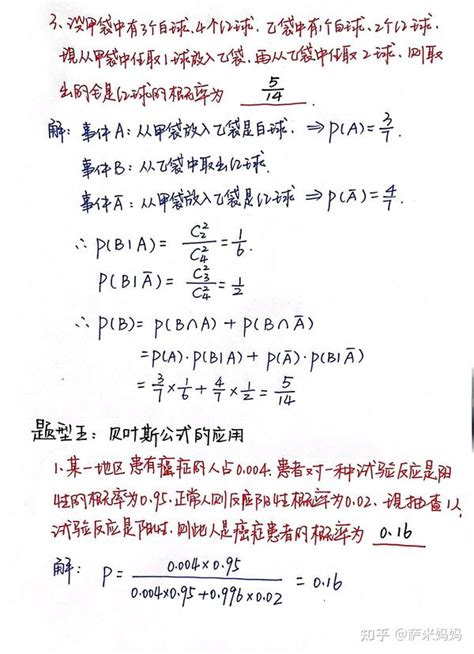 3. 设甲袋中有3个白球、4个红球,乙袋中有1个白球、2个红球.
现从甲袋中任取1球放入乙袋,再从乙袋中任取2球,则取
出的全是红球的概率为 5/14
解: 事件A: 从甲袋放入乙袋是白球. ⇒ P(A)=3/7.
事件B: 从乙袋中取出红球.
事件Ā: 从甲袋放入乙袋是红球 ⇒ P(Ā)=4/7.
∴ P(B|A) = C₂²/C₄² = 1/6.
P(B|Ā) = C₃²/C₄² = 1/2
∴ P(B) = P(B∩A) + P(B∩Ā)
=P(A)·P(B|A) + P(Ā)·P(B|Ā)
= 3/7 × 1/6 + 4/7 × 1/2 = 5/14
题型五: 贝叶斯公式的应用
1. 某一地区患有癌症的人占0.004, 患者对一种试验反应是阳
性的概率为0.95, 正常人则反应阳性概率为0.02. 现抽查1人
试验反应是阳性, 则此人是癌症患者的概率为 0.16
解: P = 0.004×0.95/(0.004×0.95+0.996×0.02) = 0.16
知乎 @萨米妈妈